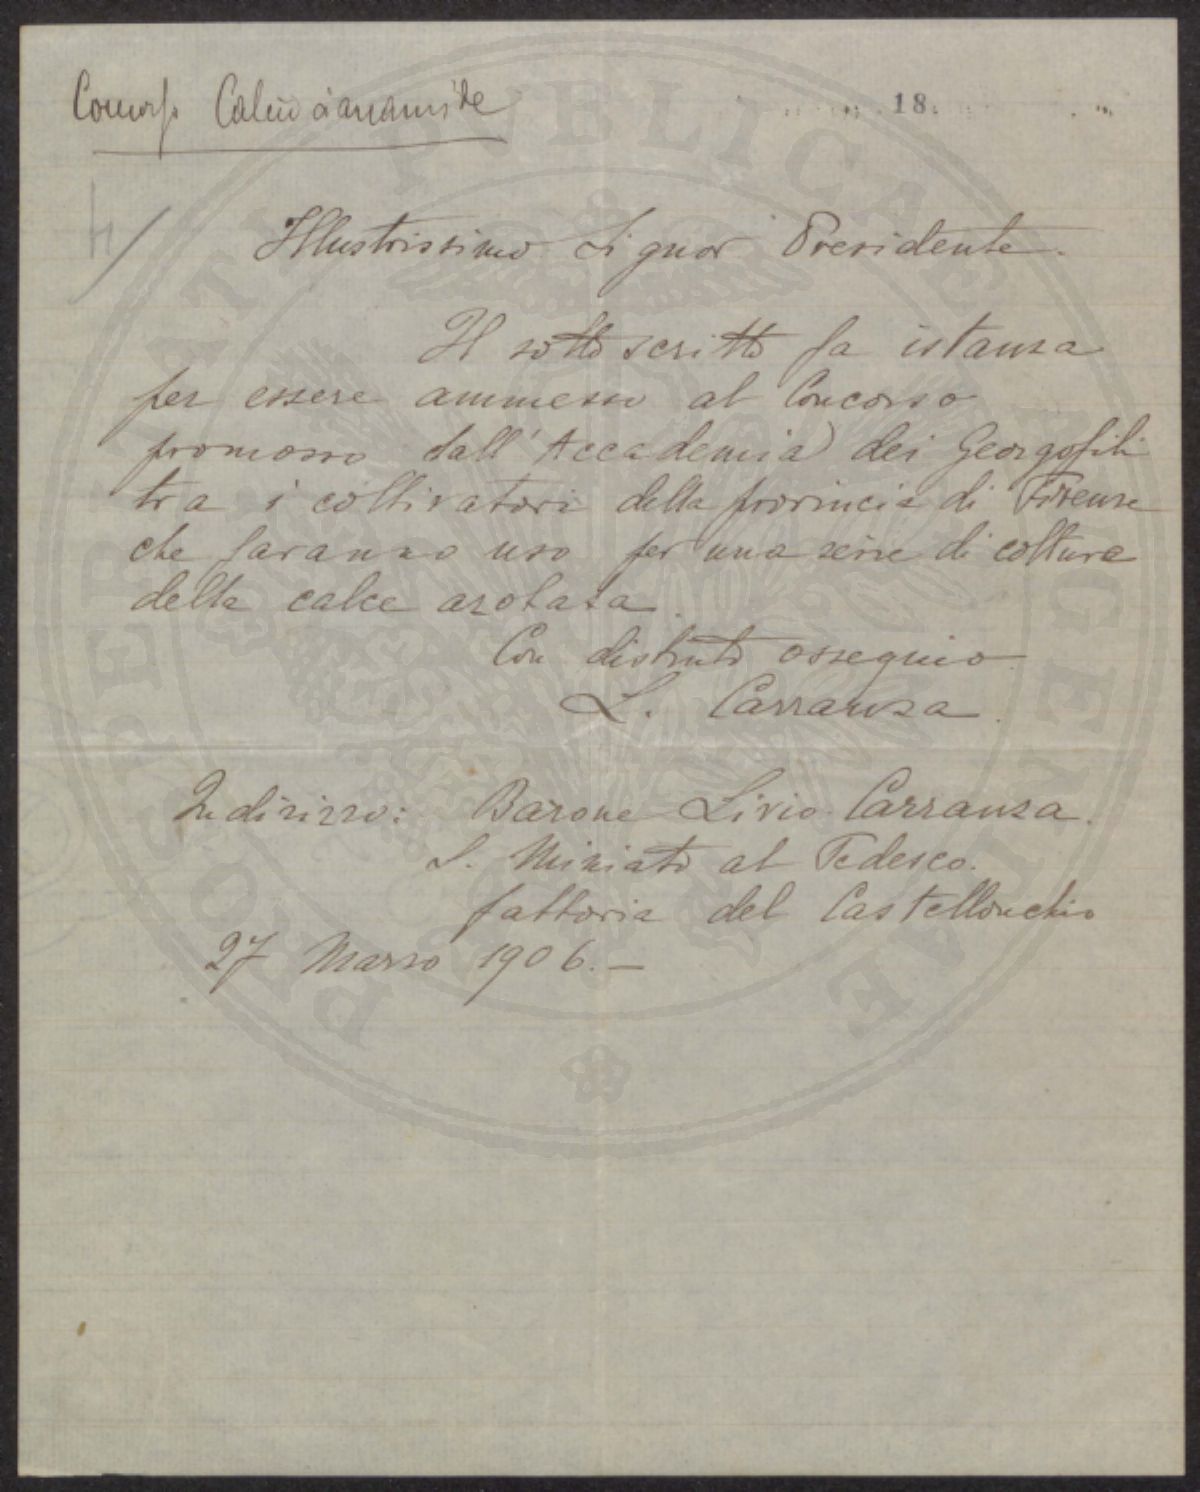 Concorso Calciocianamide
18
4/
Illustrissimo Signor Presidente.
Il sottoscritto fa istanza
per essere ammesso al Concorso
promosso dall'Accademia dei Georgofili
tra i coltivatori della provincia di Firenze
che faranno uso per una serie di colture
della calce azotata.
Con distinto ossequio
L. Carranza.
Indirizzo: Barone Livio Carranza.
S. Miniato al Tedesco.
fattoria del Castellonchio
27 Marzo 1906. —
PVBLICAE
PROSPERITATI
AVGENDAE